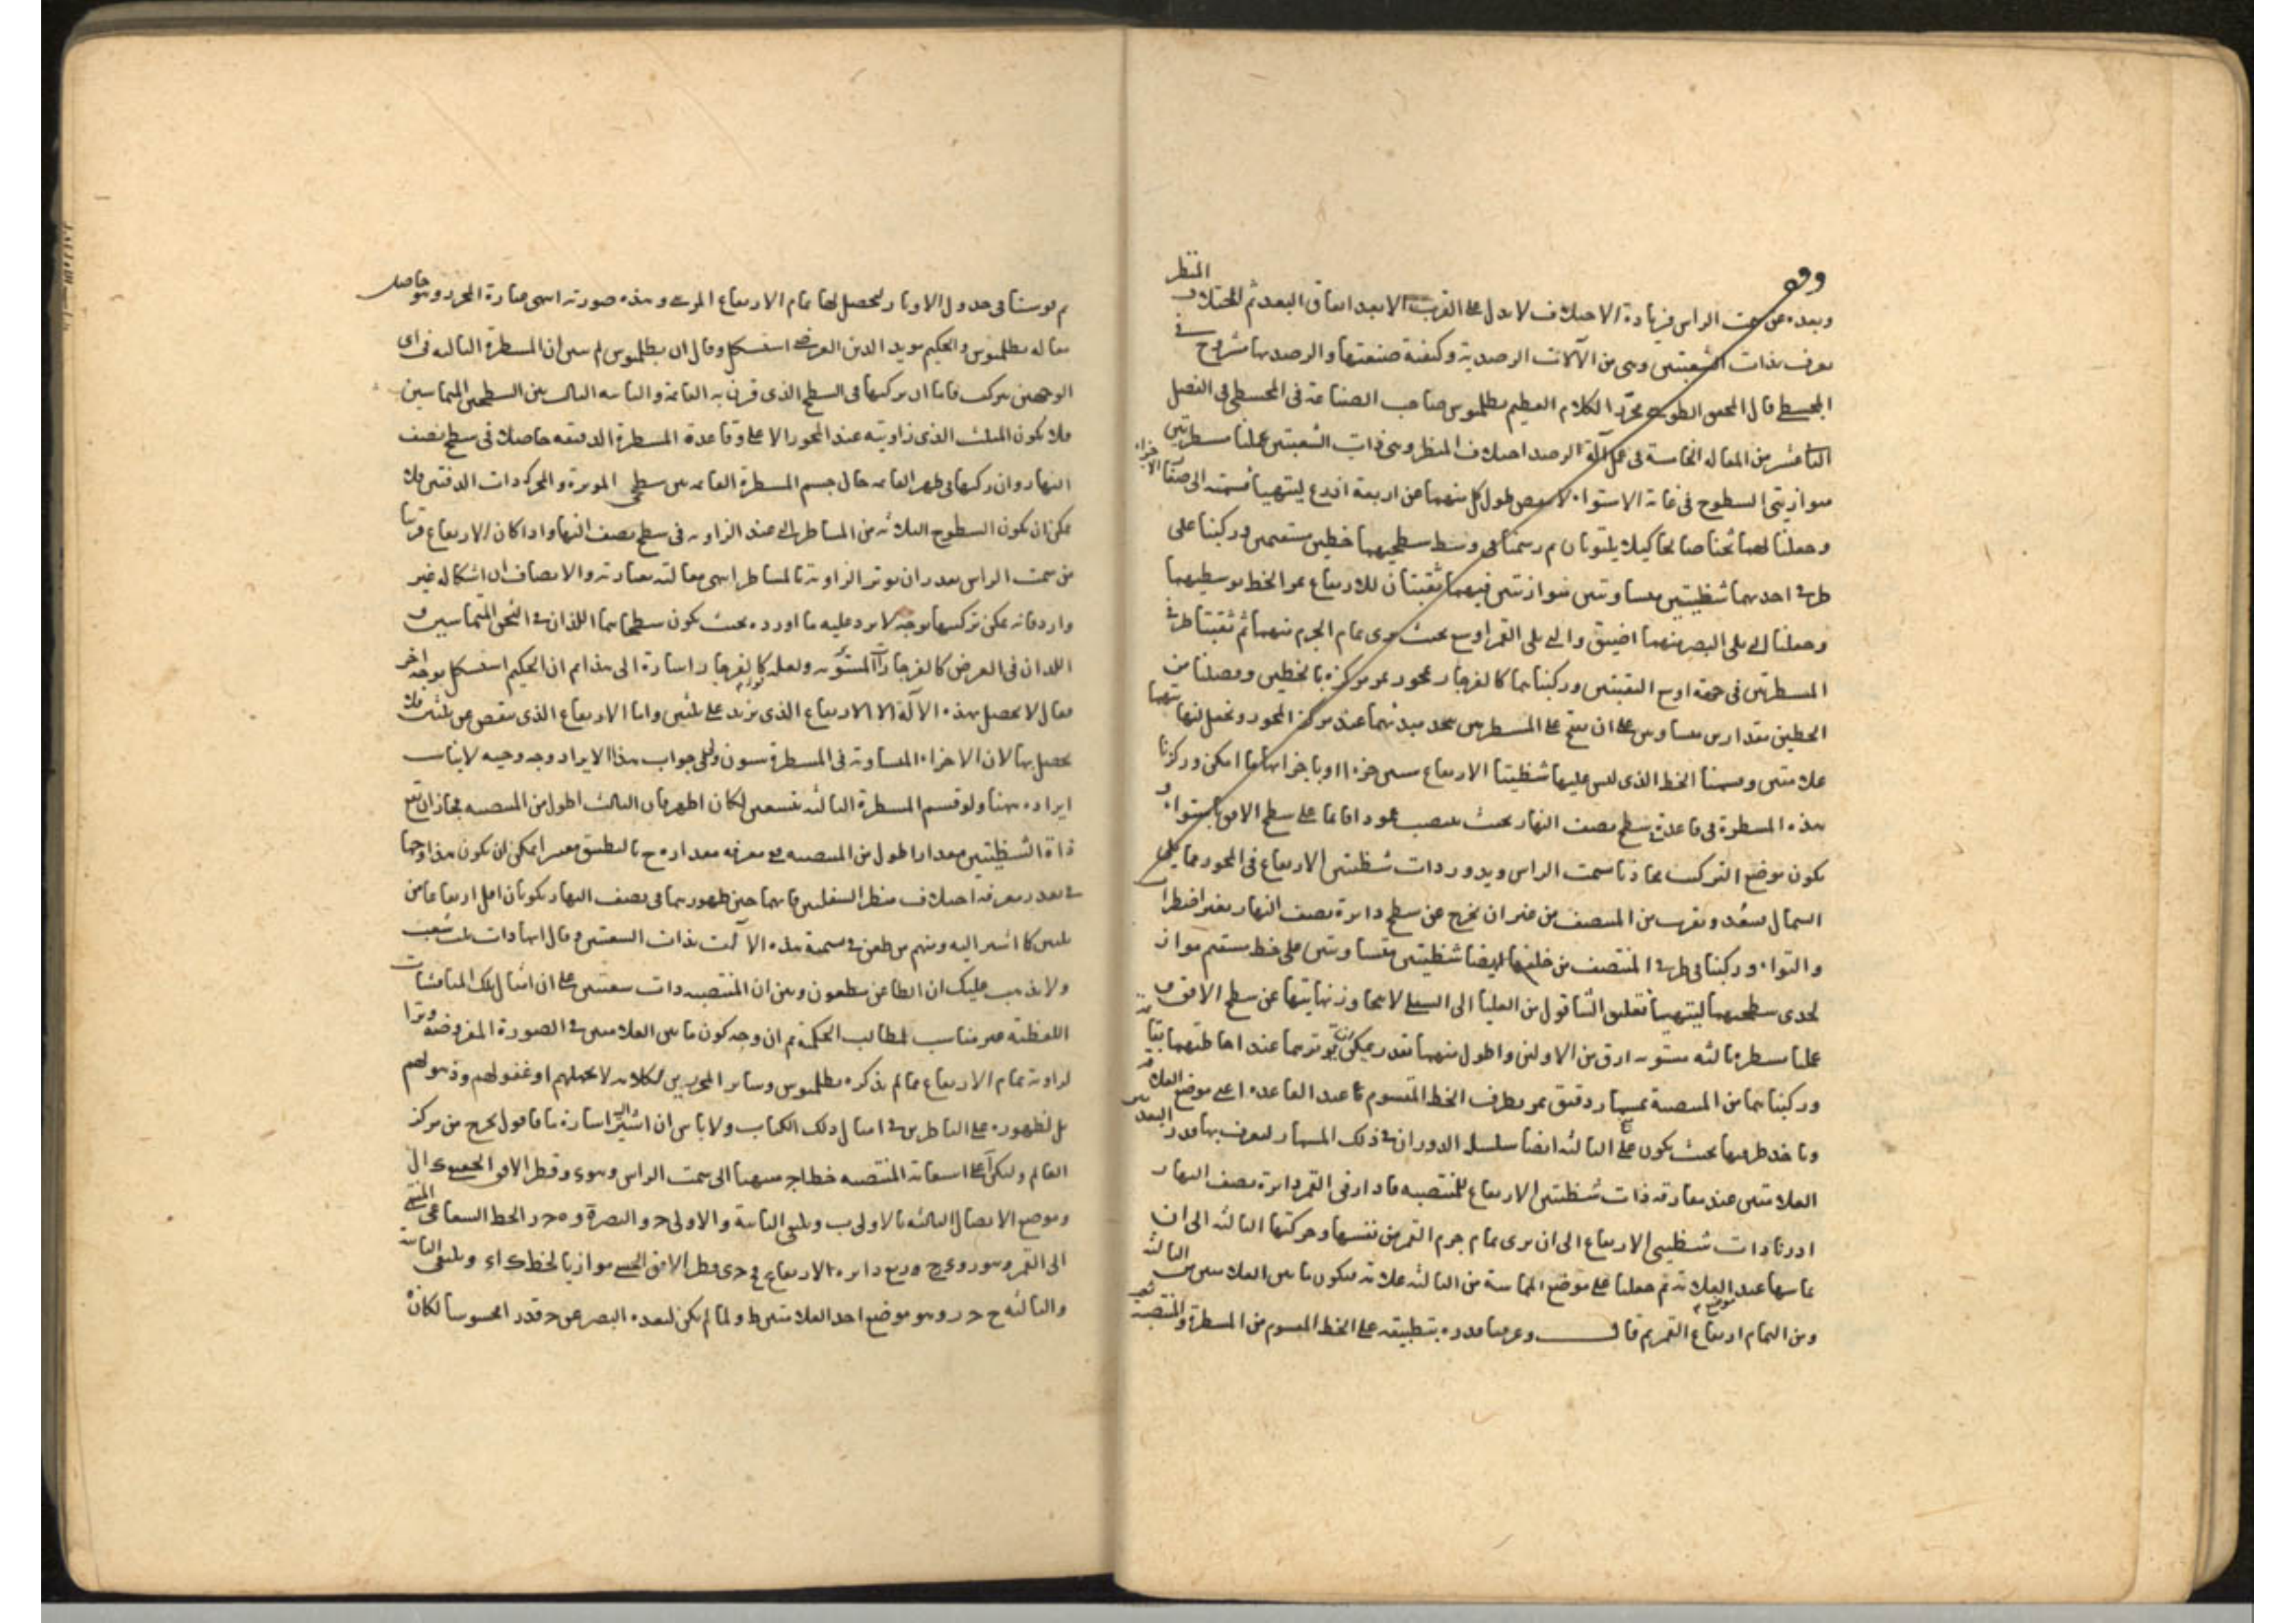 وبعده عن سمت الراس فزيادة الاختلاف لا تدل على القرب الابعد اتفاق البعد ثم اختلاف المنظر
يعرف بذات الشعبتين وهي من الآلات الرصدية وكيفية صنعتها والرصد بها مشروح في
المجسطي قال المحقق الطوسي محرر الكلام العظيم بطلميوس صاحب الصناعة في المجسطي في الفصل
الثاني عشر من المقالة الخامسة في عمل آلة الرصد اختلاف المنظر وهي ذات الشعبتين عملنا مسطرتين
متوازيتي السطوح في غاية الاستواء لا ينقص طول كل منهما عن اربعة اذرع ليتهيأ قسمته الى الاجزاء
وجعلنا لهما ثخنا صالحا كيلا يلتويان ثم رسمنا في وسط سطحيهما خطين مستقيمين وركبنا على
طرفي احدهما شظيتين متساويتين متوازيتين فيهما ثقبتان للارتفاع يمر الخط بوسطيهما
وجعلنا التي يلي البصر منهما اضيق والتي يلي القمر اوسع بحيث يرى تمام الجرم منهما ثم ثقبنا طرفي
المسطرتين في جهة اوسع الثقبتين وركبناهما كالفرجار بمحور يمر مركزه بالخطين وفصلنا من
الخطين مقدارين متساويين على ان يقع على المسطرتين بحد مبدئهما عند مركز المحور ونجعل لنهايتهما
علامتين وقسمنا الخط الذي ليس عليها شظيتا الارتفاع ستين جزءا وباجزائها ما امكن وركزنا
هذه المسطرة في قاعدة سطح نصف النهار بحيث ينتصب عمودا قائما على سطح الافق باستواء و
يكون موضع التركيب محاذيا سمت الراس ويدور ذات شظيتي الارتفاع في المحور مما يلي
الشمال يبعد ويقرب من المنتصف من غير ان يخرج عن سطح دائرة نصف النهار بغير اضطراب
والتواء وركبنا في طرفي المنتصف من خلفها ايضا شظيتين متساويتين على خط مستقيم مواز
لاحدى سطحيهما ليتهيأ تعليق الشاقول من العليا الى السفلى لا يتجاوز نهايتها عن سطح الافق ثم
عملنا مسطرة ثالثة مستوية ارق من الاوليين واطول منهما بقدر يمكن ان توترهما عند احاطتهما بقائمة
وركبناهما من المنتصبة بمسمار دقيق يمر بطرف الخط المقسوم عند القاعدة اعني موضع العلامة
وناخذ طرفها بحيث يكون على الثالثة ايضا سلسل الدوران في ذلك المسمار ليعرف بها قدر البعد بين
العلامتين عند مفارقة ذات شظيتي الارتفاع للمنتصبة فاذا وافى القمر دائرة نصف النهار
ادرنا ذات شظيتي الارتفاع الى ان يرى تمام جرم القمر من ثقبتيها وحركنا الثالثة الى ان
تماسها عند العلامة ثم جعلنا على موضع المماسة من الثالثة علامة فيكون ما بين العلامتين من الثالثة
وتر التمام ارتفاع القمر ثم قال وعرفنا قدره بتطبيقه على الخط المقسوم من المسطرة المنتصبة
ثم قوسنا في جدول الاوتار ليحصل لها تمام الارتفاع المرئي وهذه صورته انتهى عبارة المحرر وهو حاصل
مقالة بطلميوس والحكيم مويد الدين العرضي استشكل وقال ان بطلميوس لم يبين ان المسطرة الثالثة في اي
الوجهين تتركب فانما ان تركبها في السطح الذي قرن به القائمة والثانية الثالثة بين السطحين المتماسين
فلا يكون المثلث الذي زاويته عند المحور الاعلى وقاعدة المسطرة الدقيقة حاصلا في سطح نصف
النهار وان ركبها في ظهر القائمة حال جسم المسطرة القائمة بين سطحي الموترة والمحركة ذات الدفتين فلا
يمكن ان يكون السطوح الثلاثة من المساطر التي عند الزاوية في سطح نصف النهار واذا كان الارتفاع قريبا
من سمت الراس تعذر ان يوتر الزاوية بالمساطر انتهى مقالته بعبارته والانصاف ان اشكاله غير
وارد فانه يمكن تركيبها بوجه لا يرد عليه ما اورده بحيث يكون سطحاهما اللذان في الثخن المتماسين و
اللذان في العرض كالفرجار المستوية ولعله كالفرجار اشارة الى هذا ثم ان الحكيم استشكل بوجه اخر
فقال لا يحصل بهذه الآلة الا الارتفاع الذي يزيد على ثلثين واما الارتفاع الذي ينقص عن ثلثين فلا
يحصل بها لان الاجزاء المتساوية في المسطرة ستون ولي جواب هذا الايراد وجه وجيه لا يناسب
ايراده ههنا ولو قسم المسطرة الثالثة بتسعين لكان اظهر فان الثالثة اطول من المنتصبة فجاز ان يقع
ذات الشظيتين مقدارا اطول من المنتصبة مع معرفة مقداره ح بالتطبيق متعسر يمكن ان يكون هذا وجها
في تعذر معرفة اختلاف منظر السفليين فانهما حين ظهورهما في نصف النهار يكونان اقل ارتفاعا من
ثلثين كما اشير اليه ومنهم من طعن في تسمية هذه الآلات بذات الشعبتين وقال انها ذات ثلث شعب
ولا يذهب عليك ان الطاعن مطعون وبين ان المنتصبة ذات شعبتين على ان امثال تلك المناقشات
اللفظية غير مناسب لمطالب الحكمة ثم ان وجه كون ما بين العلامتين في الصورة المفروضة وترا
لزاوية تمام الارتفاع مما لم يذكره بطلميوس وسائر المحررين لكلامه لا لجهلهم او غفولهم وذهولهم
بل لظهوره على الناظرين في امثال ذلك الكتاب ولا باس ان اشير اليه اشارة ما فاقول يخرج من مركز
العالم وليكن آ على استقامة المنتصبة خط اج منتهيا الى سمت الراس وهو ء وقطر الافق الحقيقي ء ال
وموضع الاتصال الثالثة بالاولى ب وملتقى الثانية والاولى ح والبصرة و ه ح ر الخط الشعاعي المنتهى
الى القمر وهو ر و ع ج وربع دائرة الارتفاع و ح ى قطر الافق الحسي موازيا لخط ك اء وملتقى الثانية
والثالثة ح ح ر وهو موضع احد العلامتين ط ولما لم يكن لبعد البصر عن ح قدر محسوسا لكان